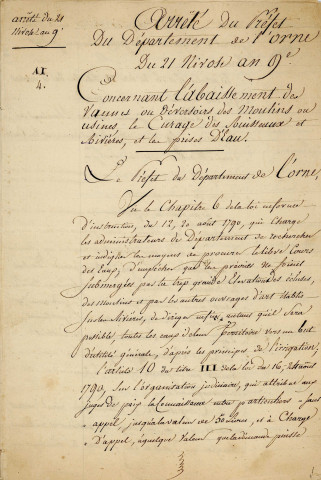 arrêté du 21
Nivose an 9e
AI
4.
Arrêté Du Préfet
Du Département de l'orne
Du 21 Nivose an 9e.
Concernant l'abaissement des
Vannes ou Déversoirs des Moulins ou
usines, le Curage des Ruisseaux et
Rivières, et les prises D'Eau.
Le Préfet du Département de L'orne,
Vu le Chapitre 6 de la loi en forme
d'instruction, du 12. 20 août 1790, qui Charge
les administrateurs de Département de rechercher
et indiquer les moyens de procurer le libre Cours
des Eaux; d'empêcher que les prairies ne soient
submergées par la trop grande Elévation des écluses,
des moulins et par les autres ouvrages d'art établis
sur les Rivières, de diriger enfin autant qu'il sera
possible toutes les Eaux de leur Territoire vers un but
d'utilité générale, d'après les principes de l'irrigation;
l'article 10 du titre III de la loi du 16, 24 août
1790, sur l'organisation judiciaire, qui attribue aux
juges de paix la Connaissance entre particuliers "sans
" appel jusqu'à la valeur de 50 livres, et à Charge
" D'appel, à quelque Valeur que la demande puisse